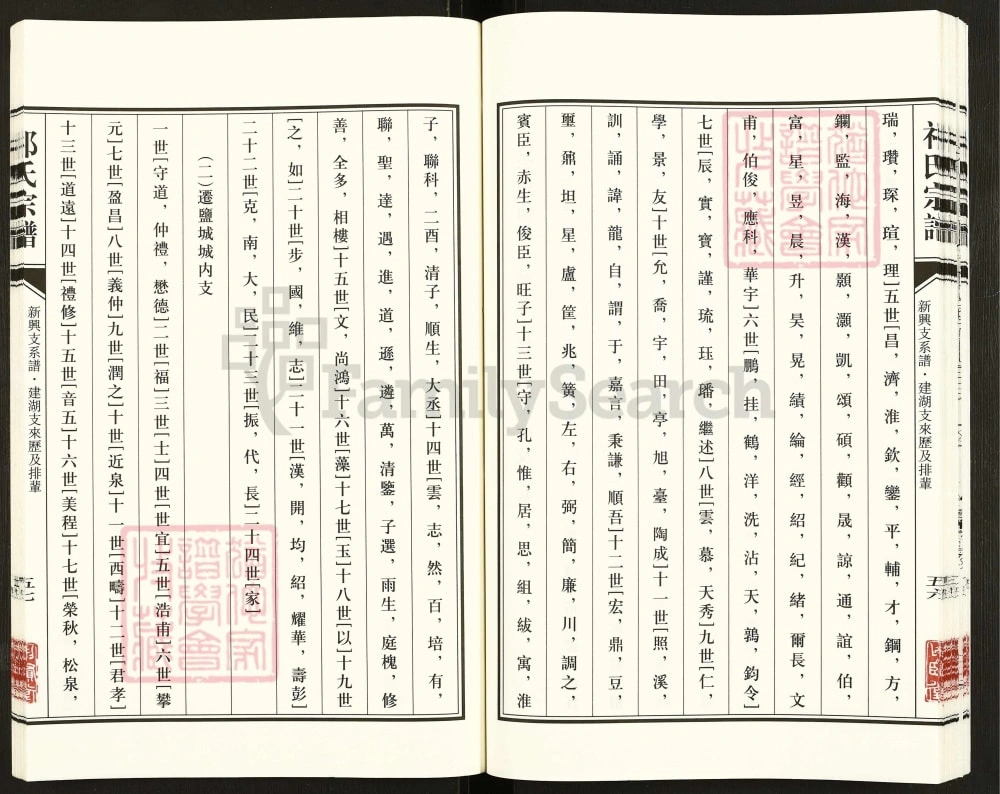 瑞，瓚，琛，瑄，理]五世[昌，濟，淮，欽，鑾，平，輔，才，鋼，方，
鑭，監，海，漢，顥，灝，凱，頌，碩，觀，晟，諒，通，誼，伯，
富，星，昱，晨，升，昊，晃，績，綸，經，紹，紀，緒，爾長，文
甫，伯俊，應科，華宇]六世[鵬，挂，鶴，洋，洗，沾，天，鶉，鈞令]
七世[辰，實，寶，謹，琉，珏，璠，繼述]八世[雲，慕，天秀]九世[仁，
學，景，友]十世[允，喬，宇，田，亭，旭，臺，陶成]十一世[照，溪，
訓，誦，諱，龍，自，謂，于，嘉言，秉謙，順吾]十二世[宏，鼎，豆，
璽，鼐，坦，星，盧，筐，兆，簧，左，右，弼，簡，廉，川，調之，
賓臣，赤生，俊臣，旺子]十三世[守，孔，惟，居，思，組，紱，寓，淮
新興支系譜·建湖支來歷及排輩
五六
子，聯科，二酉，清子，順生，大丞]十四世[雲，志，然，百，培，有，
聯，聖，達，遇，進，道，遜，遴，萬，清鑒，子選，雨生，庭槐，修
善，全多，相樓]十五世[文，尚鴻]十六世[藻]十七世[玉]十八世[以]十九世
[之，如]二十世[步，國，維，志]二十一世[漢，開，均，紹，耀華，壽彭]
二十二世[克，南，大，民]二十三世[振，代，長]二十四世[家]
(二)遷鹽城城内支
一世[守道，仲禮，懋德]二世[福]三世[士]四世[世宜]五世[浩甫]六世[攀
元]七世[盈昌]八世[義仲]九世[潤之]十世[近泉]十一世[西疇]十二世[君孝]
十三世[道遠]十四世[禮修]十五世[音五]十六世[美程]十七世[榮秋，松泉，
氏宗譜
新興支系譜·建湖支來歷及排輩
五七
FamilySearch